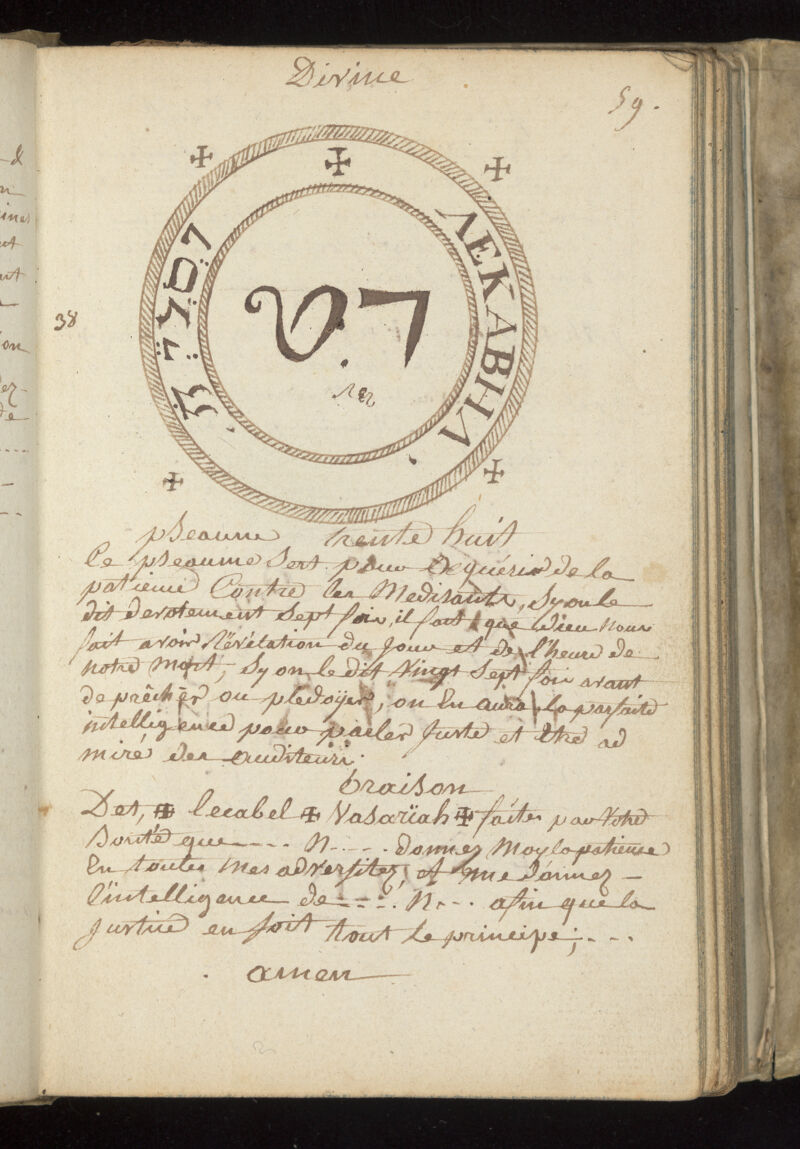 Divine
59.
38
ΛΕΚΑΒΗΛ
pseaume trente huit
Ce pseaume sert pour acquérir de la
patience Contre les Medisants, Sy on le
dit devotement Sept fois, il fait que Dieu nous
fait avoir Révélation du Jour et de l'heure de
notre Mort, Sy on le dit Vingt Sept fois avant
de prêcher ou pledoÿer, on En aura la parfaite
intelligence pour parler Juste et être ad
miré des auditeurs.
Oraison
Det, ✠ lecabel ✠ Vasariah ✠ faites par Votre
bonté que - - - . N. - - - . donnez Moy la patience
En toutes mes adversitez, et me donnez -
l'intelligence de - - - . N. - - . afin que la
Justice en soit tout le principe; - - -
amen